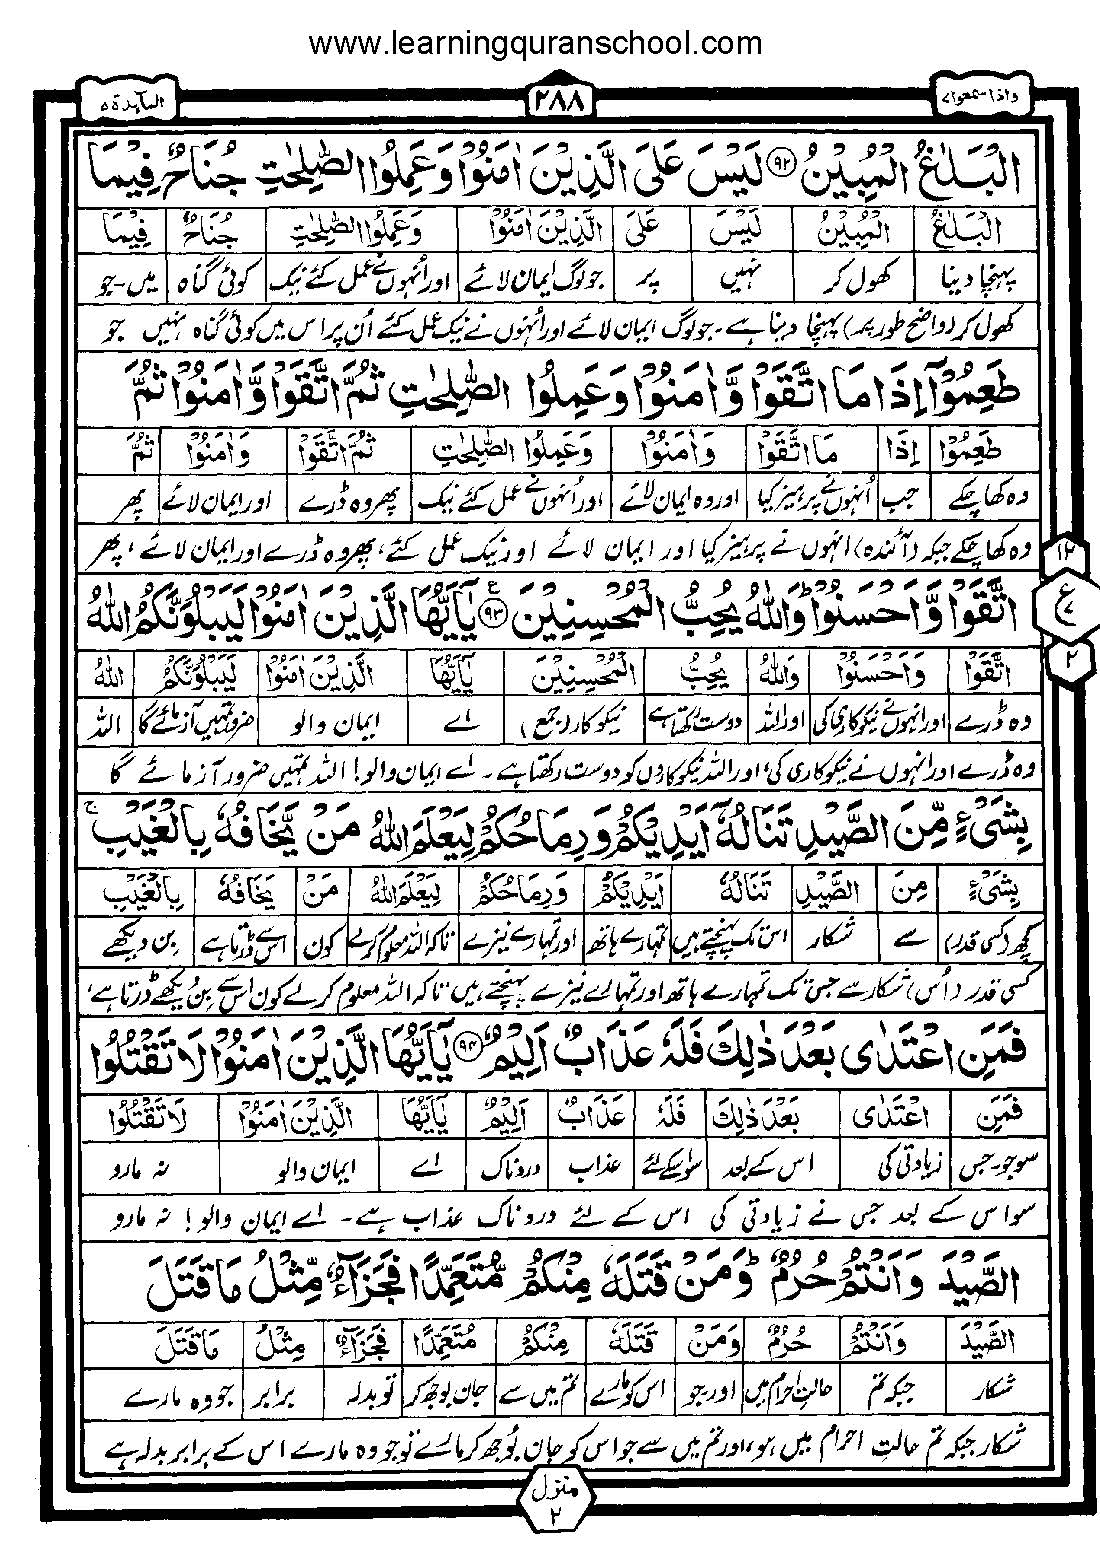 www.learningquranschool.com
واذاسمعوا۷
۲۸۸
المآئدة ۵
الْبَلٰغُ الْمُبِيْنُ ۹۲ لَيْسَ عَلَى الَّذِيْنَ اٰمَنُوْا وَعَمِلُوا الصّٰلِحٰتِ جُنَاحٌ فِيْمَا
الْبَلٰغُ الْمُبِيْنُ لَيْسَ عَلَى الَّذِيْنَ اٰمَنُوْا وَعَمِلُوا الصّٰلِحٰتِ جُنَاحٌ فِيْمَا
پہنچا دینا کھول کر نہیں پر جو لوگ ایمان لائے اور اُنہوں نے عمل کئے نیک کوئی گناہ میں-جو
کھول کر (واضح طور پر) پہنچا دینا ہے۔ جو لوگ ایمان لائے اور اُنہوں نے نیک عمل کئے اُن پر اس میں کوئی گناہ نہیں جو
طَعِمُوْٓا اِذَا مَا اتَّقَوْا وَّاٰمَنُوْا وَعَمِلُوا الصّٰلِحٰتِ ثُمَّ اتَّقَوْا وَّاٰمَنُوْا ثُمَّ
طَعِمُوْٓا اِذَا مَا اتَّقَوْا وَاٰمَنُوْا وَعَمِلُوا الصّٰلِحٰتِ ثُمَّ اتَّقَوْا وَاٰمَنُوْا ثُمَّ
وہ کھا چکے جب اُنہوں نے پرہیز کیا اور وہ ایمان لائے اور اُنہوں نے عمل کئے نیک پھر وہ ڈرے اور ایمان لائے پھر
وہ کھا چکے جبکہ (آئندہ) انہوں نے پرہیز کیا اور ایمان لائے اور نیک عمل کئے، پھر وہ ڈرے اور ایمان لائے، پھر
۱۲
اتَّقَوْا وَّاَحْسَنُوْا ؕ وَاللّٰهُ يُحِبُّ الْمُحْسِنِيْنَ ۹۳ يٰٓاَيُّهَا الَّذِيْنَ اٰمَنُوْا لَيَبْلُوَنَّكُمُ اللّٰهُ
ع ۷
۲
اتَّقَوْا وَاَحْسَنُوْا وَاللّٰهُ يُحِبُّ الْمُحْسِنِيْنَ يٰٓاَيُّهَا الَّذِيْنَ اٰمَنُوْا لَيَبْلُوَنَّكُمُ اللّٰهُ
وہ ڈرے اور انہوں نے نیکوکاری کی اور اللہ دوست رکھتا ہے نیکوکار (جمع) اے ایمان والو ضرور تمہیں آزمائے گا اللہ
وہ ڈرے اور انہوں نے نیکوکاری کی، اور اللہ نیکوکاروں کو دوست رکھتا ہے۔ اے ایمان والو! اللہ تمہیں ضرور آزمائے گا
بِشَىْءٍ مِّنَ الصَّيْدِ تَنَالُهٗٓ اَيْدِيْكُمْ وَرِمَاحُكُمْ لِيَعْلَمَ اللّٰهُ مَنْ يَّخَافُهٗ بِالْغَيْبِ ۚ
بِشَىْءٍ مِنَ الصَّيْدِ تَنَالُهٗ اَيْدِيْكُمْ وَرِمَاحُكُمْ لِيَعْلَمَ اللّٰهُ مَنْ يَخَافُهٗ بِالْغَيْبِ
کچھ (کسی قدر) سے شکار اس تک پہنچتے ہیں تمہارے ہاتھ اور تمہارے نیزے تاکہ اللہ معلوم کرلے کون اس سے ڈرتا ہے بِن دیکھے
کسی قدر (اُس) شکار سے جس تک تمہارے ہاتھ اور تمہارے نیزے پہنچتے ہیں تاکہ اللہ معلوم کرلے کون اس سے بِن دیکھے ڈرتا ہے،
فَمَنِ اعْتَدٰى بَعْدَ ذٰلِكَ فَلَهٗ عَذَابٌ اَلِيْمٌ ۹۴ يٰٓاَيُّهَا الَّذِيْنَ اٰمَنُوْا لَا تَقْتُلُوا
فَمَنِ اعْتَدٰى بَعْدَ ذٰلِكَ فَلَهٗ عَذَابٌ اَلِيْمٌ يٰٓاَيُّهَا الَّذِيْنَ اٰمَنُوْا لَا تَقْتُلُوا
سو جو-جس زیادتی کی اس کے بعد سو اس کے لئے عذاب دردناک اے ایمان والو نہ مارو
سو اس کے بعد جس نے زیادتی کی اس کے لئے دردناک عذاب ہے۔ اے ایمان والو! نہ مارو
الصَّيْدَ وَاَنْتُمْ حُرُمٌ ؕ وَمَنْ قَتَلَهٗ مِنْكُمْ مُّتَعَمِّدًا فَجَزَآءٌ مِّثْلُ مَا قَتَلَ
الصَّيْدَ وَاَنْتُمْ حُرُمٌ وَمَنْ قَتَلَهٗ مِنْكُمْ مُتَعَمِّدًا فَجَزَآءٌ مِثْلُ مَا قَتَلَ
شکار جبکہ تم حالتِ احرام میں اور جو اس کو مارے تم میں سے جان بوجھ کر تو بدلہ برابر جو وہ مارے
شکار جبکہ تم حالتِ احرام میں ہو، اور تم میں سے جو اس کو جان بُوجھ کر مارے تو جو وہ مارے اس کے برابر بدلہ ہے
منزل
۲